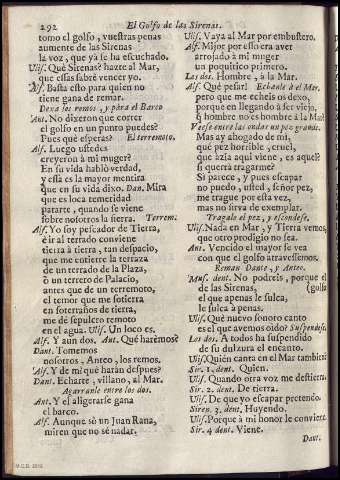 292
El Golfo de las Sirenas.
tomo el golfo, vuestras penas
aumente de las Sirenas
la voz, que yà se ha escuchado.
Ulis. Què Sirenas? hazte al Mar,
que essas sabrè vencer yo.
Alf. Basta esto para quien no
tiene gana de remar.
Dexa los remos, y pàra el Barco
Ant. No dixeron que correr
el golfo en un punto puedes?
Pues què esperas? El terremoto.
Alf. Luego ustedes
creyeron à mi muger?
En su vida hablò verdad,
y essa es la mayor mentira
que en su vida dixo. Dan. Mira
que es loca temeridad
pararte, quando se viene
sobre nosotros la tierra. Terrem.
Alf. Yo soy pescador de Tierra,
è ir al terrado conviene
tierra à tierra, tan despacio,
que me entierre la terraza
de un terrado de la Plaza,
ò un tercero de Palacio,
antes que de un terremoto,
el temor que me sotierra
en soterraños de tierra,
me dè sepulcro remoto
en el agua. Ulis. Un loco es.
Alf. Y aun dos. Ant. Què harèmos?
Dant. Tomemos
nosotros, Anteo, los remos.
Alf. Y de mi què haràn despues?
Dant. Echarte, villano, al Mar.
Agarranle entre los dos.
Ant. Y el aligerarse gana
el barco.
Alf. Aunque sò un Juan Rana,
miren que no sè nadar.
Ulis. Vaya al Mar por embustero.
Alf. Mijor por esso era aver
arrojado à mi muger
un poquitico primero.
Los dos. Hombre, à la Mar.
Alf. Què pesar! Echanle à el Mar.
pero que me echeis os dexo,
porque en llegando à ser viejo,
q hombre no es hombre à la Mar?
Veese entre las ondas un pez grande.
Mas ay ahogado de mi,
què pez horrible, cruel,
que àzia aqui viene, es aquel?
si querrà tragarme?
Si parece, y pues escapar
no puedo, usted, señor pez,
me trague por esta vez,
mas no sirva de exemplar.
Tragale el pez, y escondese.
Ulis. Nada en Mar, y Tierra vemos,
que otro prodigio no sea.
Ant. Vencido el mayor se vea
con que el golfo atravessemos.
Reman Dante, y Anteo.
Mus. dent. No podreis, porque el
de las Sirenas, (golfo
el que apenas le sulca,
le sulca à penas.
Ulis. Què nuevo sonoro canto
es el que avemos oìdo? Suspendese.
Los dos. A todos ha suspendido
de su dulzura el encanto.
Ulis. Quièn canta en el Mar tambien?
Sir. 1. dent. Quien.
Ulis. Quando otra voz me destierra?
Sir. 2. dent. De tierra.
Ulis. De que yo escapar pretendo?
Siren. 3. dent. Huyendo.
Ulis. Porque à mi honor le conviene
Sir. 4 dent. Viene.
Dant.